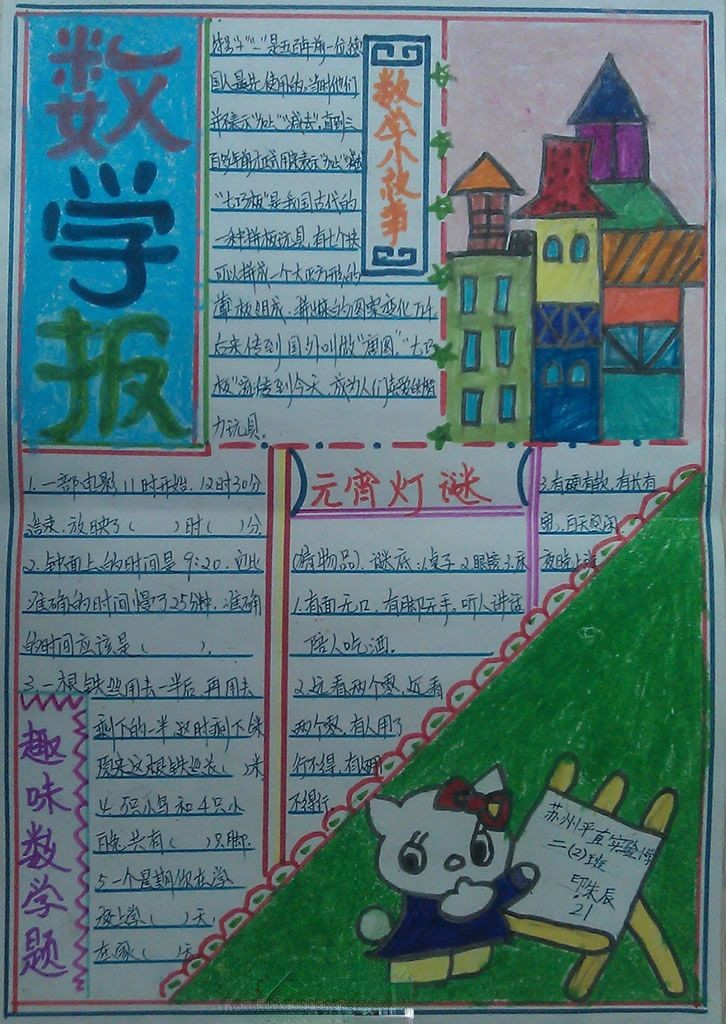 数学报
数学小故事
符号"-"是五百年前一位德
国人最先使用的,当时他们
并不表示"加上""减去",直到三
百多年前才正式用来表示"加上""减去"
"七巧板"是我国古代的
一种拼板玩具,有七个块
可以拼成一个大正方形的
薄板组成,拼出来的图案变化万千,
后来传到国外叫做"唐图","七巧
板"流传到今天,成为人们喜爱的智
力玩具.
1.一部电影11时开始,12时30分
结束,放映了( )时( )分.
2.钟面上的时间是9:20,它比
准确的时间慢了25分钟,准确
的时间应该是( ).
3.一根铁丝用去一半后,再用去
剩下的一半,这时剩下 米
原来这根铁丝长( )米
4.5只小鸟和4只小
白兔共有( )只脚.
5.一个星期你在学
校上学( )天,
在家( )天
趣味数学题
元宵灯谜
(猜物品).谜底:1.桌子 2.眼镜 3.床
1.有面无口,有脚无手,听人讲话
陪人吃酒.
2.远看两个零,近看
两个零,有人用了
行不得,有人用
不得行
3.有硬有软,有长有
宽,白天空闲
夜晚上
苏州平直实验
二(2)班
印朱辰
21